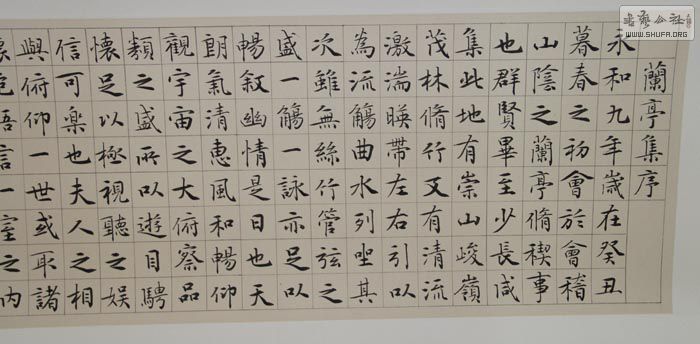 蘭亭集序
永和九年歲在癸丑
暮春之初會於會稽
山陰之蘭亭脩稧事
也群賢畢至少長咸
集此地有崇山峻嶺
茂林脩竹又有清流
激湍暎帶左右引以
為流觴曲水列坐其
次雖無絲竹管弦之
盛一觴一詠亦足以
暢敘幽情是日也天
朗氣清惠風和暢仰
觀宇宙之大俯察品
類之盛所以遊目騁
懷足以極視聽之娛
信可樂也夫人之相
與俯仰一世或取諸
言一室之內
WWW.SHUFA.ORG